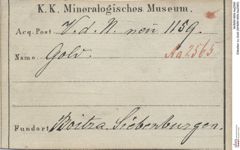 K. K. Mineralogisches Museum.
Acq. Post V. d. N. nou 1159.
Name Gold. Aa 2565
Fundort Boitza. Siebenbürgen.